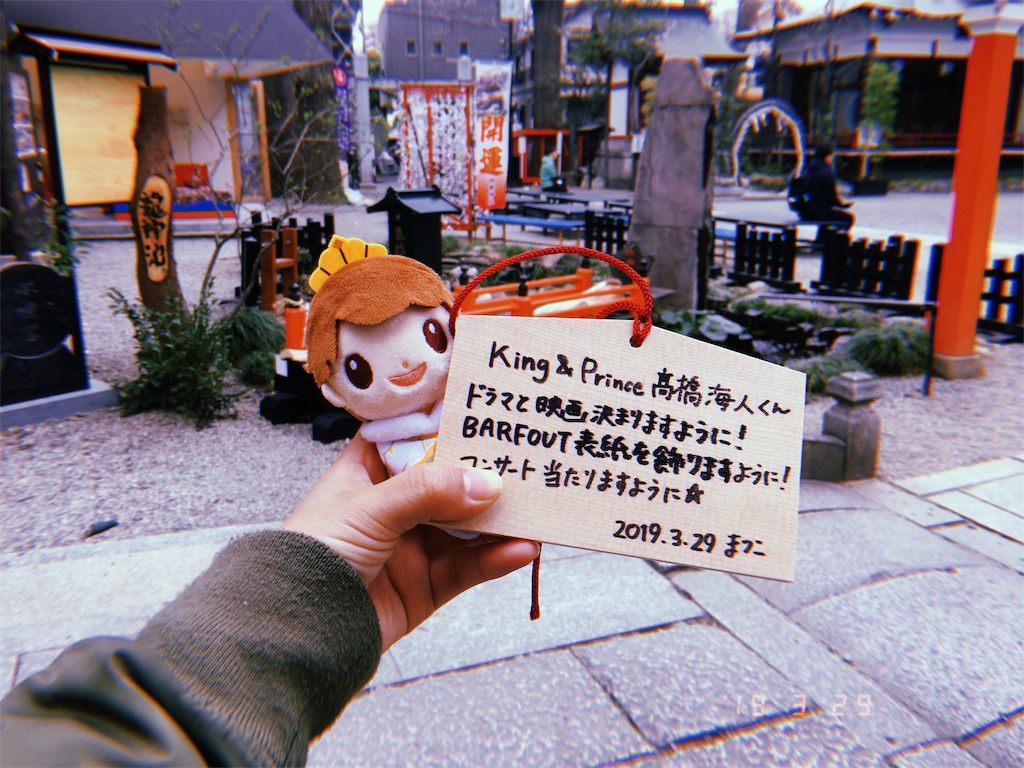 開運
龍神池
King & Prince 髙橋海人くん
ドラマと映画決まりますように!
BARFOUT 表紙を飾りますように!
コンサート当たりますように☆
2019.3.29 まつこ
'18 3 29